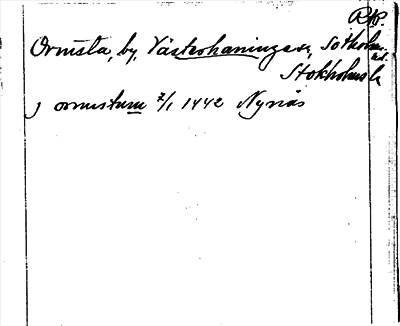 RAP.
Ormsta, by, Västerhaninge sn, Sotholms
hd.
Stokholms l
j ormstum 7/1 1442 Nynäs